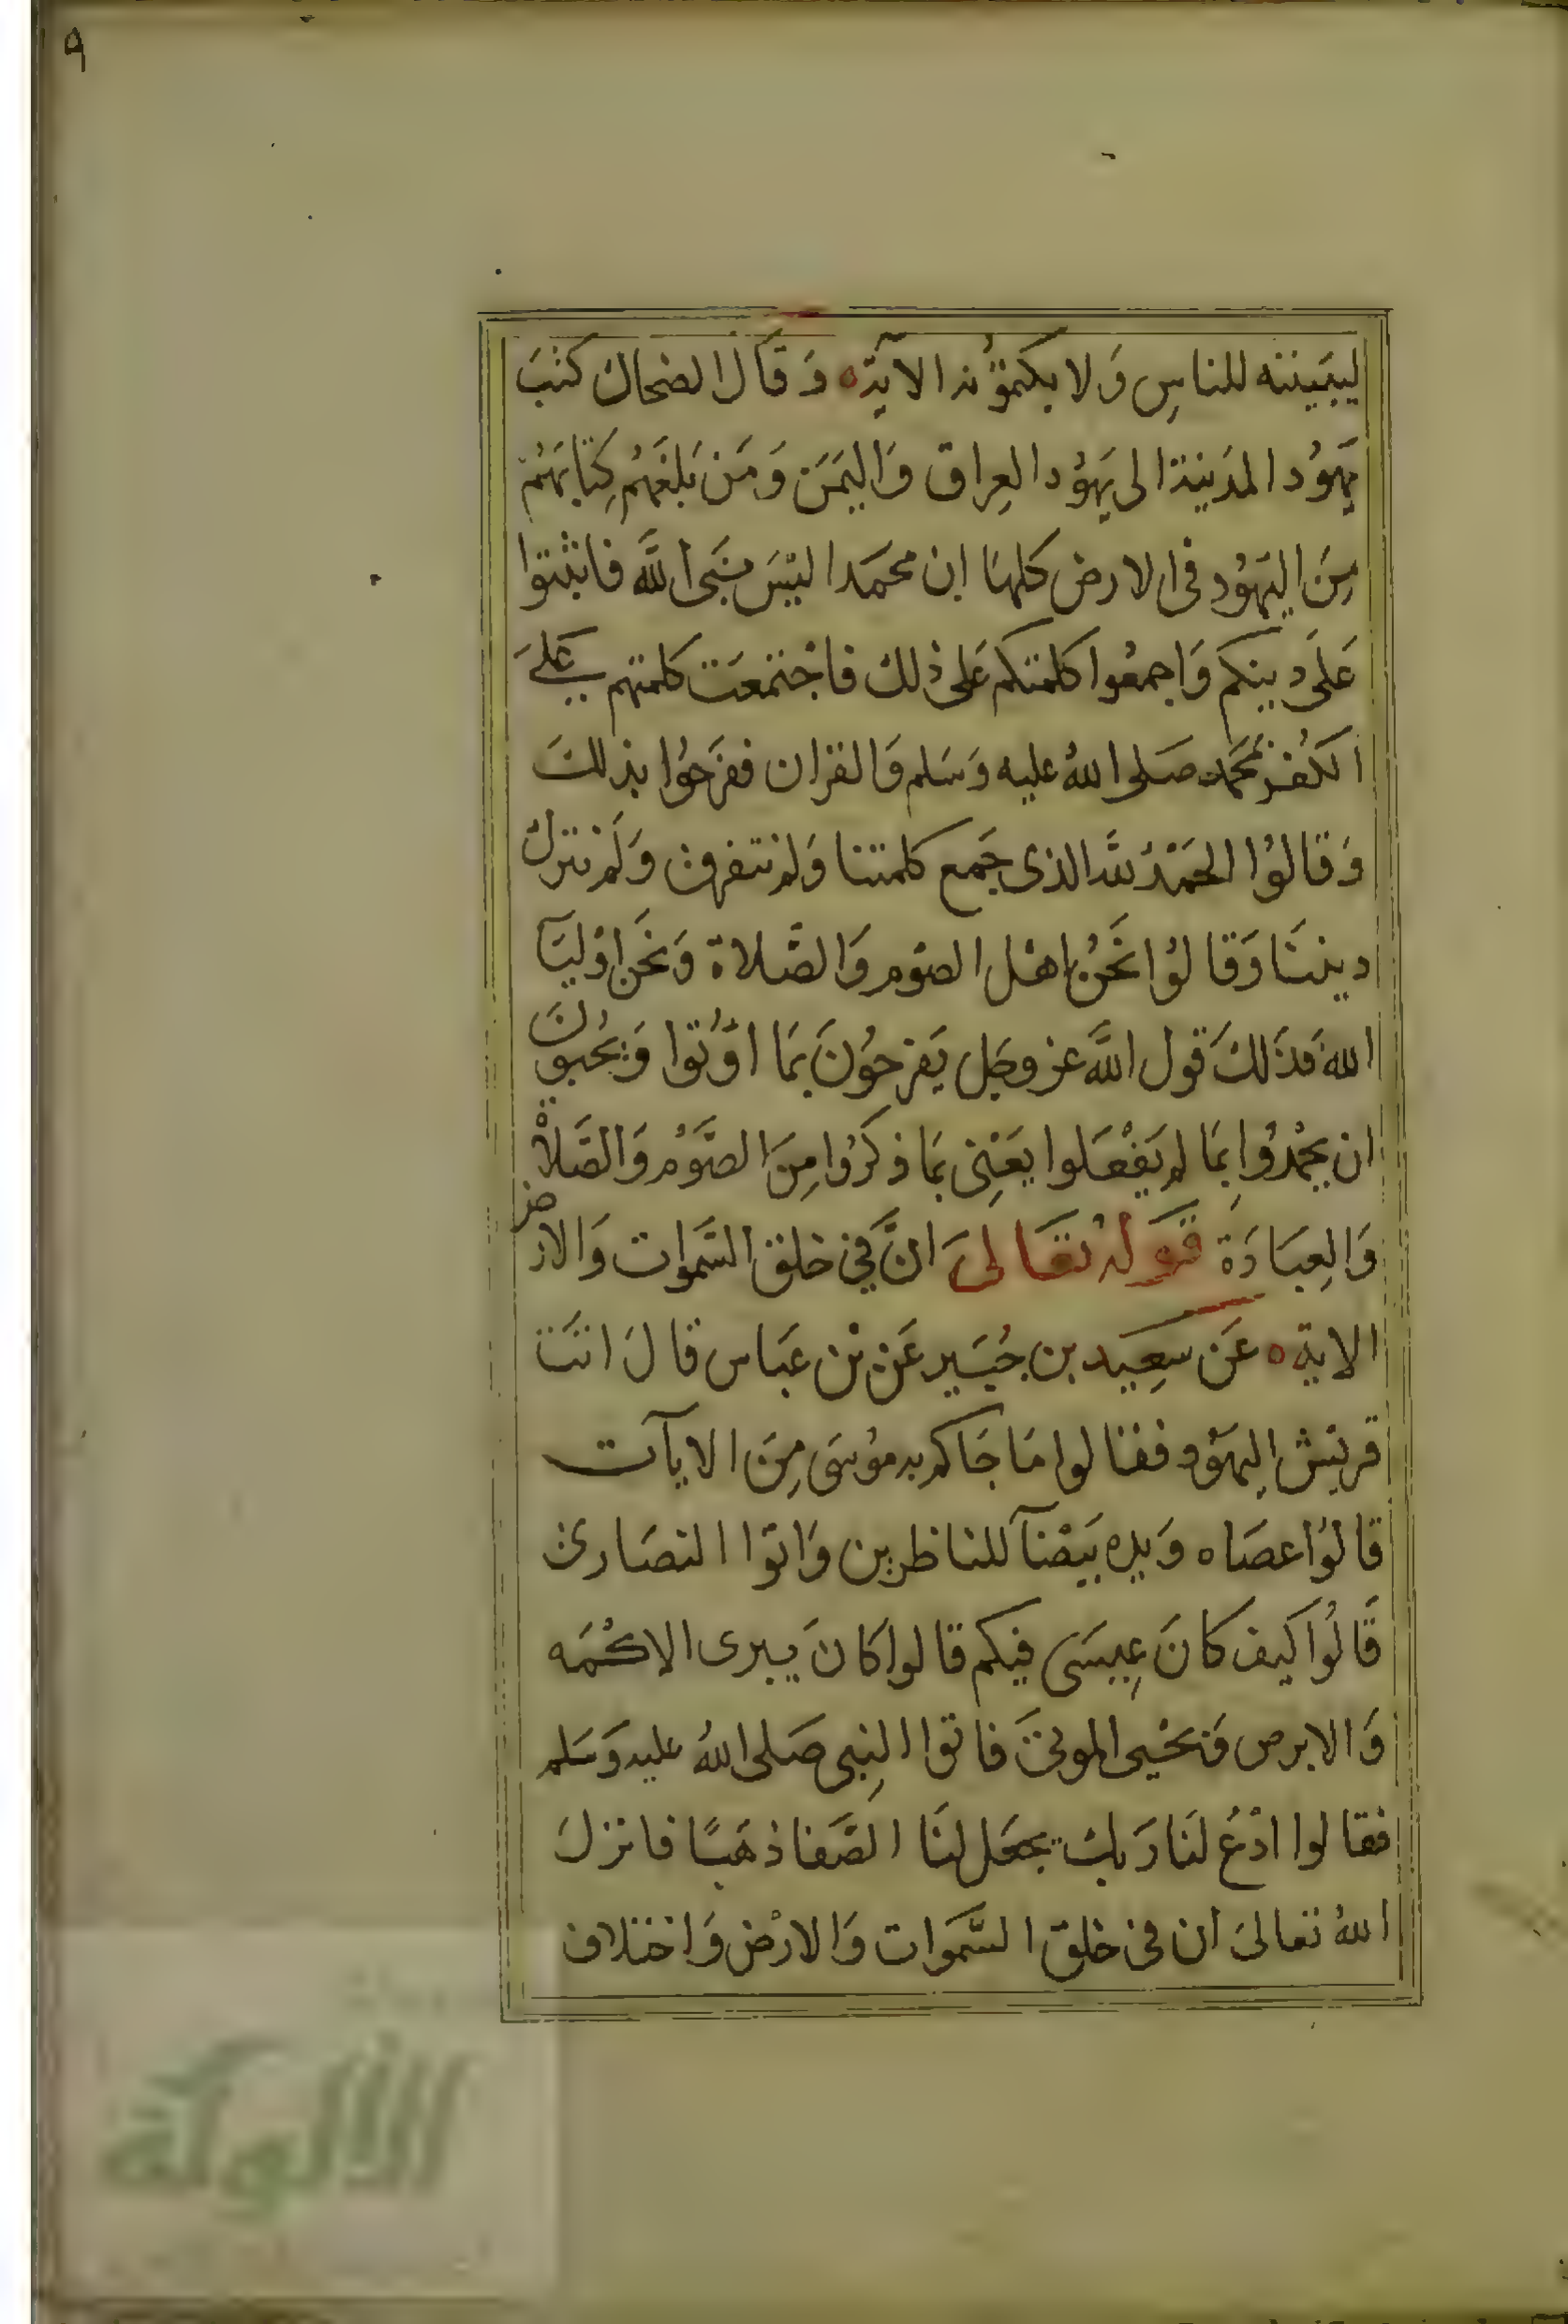 ٩
ليبيننه للناس وَلا يكتمونه الآية ه وَقَال الضحاك كتبَ
يَهوُد المدَينة الى يَهوُد العِراق وَاليَمَن وَمَن بَلغَهُم كِتابَهُم
مِنَ اليَهوُد فى الارض كلهَا ان محمَدا ليْسَ بنَبى اللَّه فاثبتوا
عَلىَ دينكم وَاجمعُوا كلمتكم عَلى ذلك فاجْتمعَت كلمتهم عَلىَ
الكُفر بمُحَمد صَلى اللهُ عليه وَسَلم وَالقرْان ففرَحوُا بذلكَ
وَقالوُا الحَمْدُ للَّه الذى جَمع كلمتنا وَلم نتفرق وَلَمْ نترك
ديننَا وَقالوُا نَحنُ اهْل الصَوْم وَالصَّلاة وَنَحن اوْليَآ
الله فَذَلكَ قول اللَّه عز وجَل يَفرَحوُنَ بمَا اوُتوُا وَيُحبوُنَ
ان يحُمدُوا بِمَا لم يَفْعَلوا يَعْنِى بمَا ذكَرُوا مِنَ الصَّوْم وَالصَّلاة
وَالعِبَادَة قَوْلهُ تعَالىَ انَّ في خلق السَّموَات وَالارْض
الاية ه عَن سَعِيد بن جُبَير عَن بْن عَباس قالَ اتَت
قريش اليَهوُد فقالوا مَا جَاكم به موُسَى مِنَ الايآت
قالوُا عصَاه وَيده بَيضْآ للناظرين وَاتوَا النصَارى
قَالوُا كيف كانَ عِيسَى فيكم قالوا كانَ يبرى الاكْمَه
وَالابرص وَيحْيى الموتىَ فاتوا النِبى صَلى اللهُ عليه وَسَلم
فقالوا ادْعُ لنَا رَبك يجعَل لنَا الصَّفا ذهَبًا فانزلَ
اللهُ تعالىَ ان فى خلق السَّمَوَات وَالارْض وَاختلاف
الألوكة